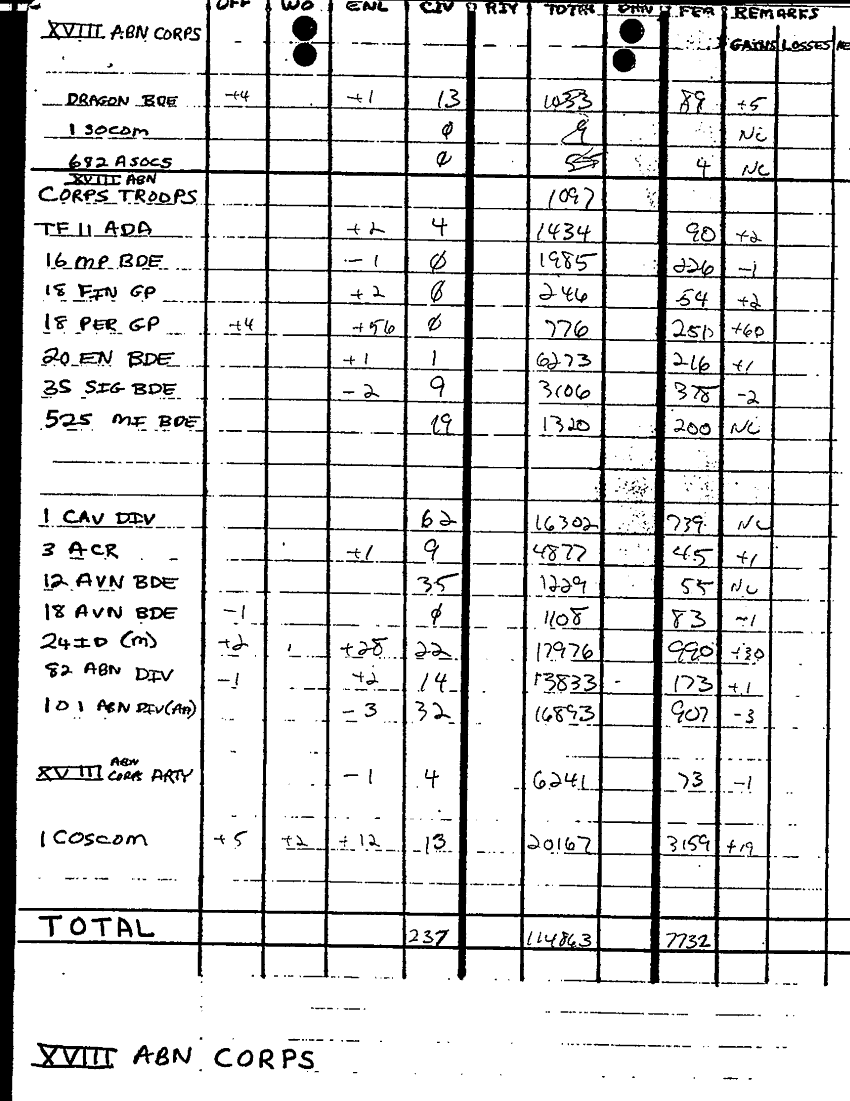 OFF WO ENL CIV TOTAL FEM REMARKS
XVIII ABN CORPS
GAINS LOSSES
DRAGON BDE +4 +1 13 1053 89 +5
1 SOCOM Ø 9 NC
682 ASOCS Ø 4 NC
XVIII ABN
CORPS TROOPS 1097
TF 11 ADA +2 4 1434 90 +2
16 MP BDE -1 Ø 1985 226 -1
18 FIN GP +2 Ø 246 54 +2
18 PER GP +4 +56 Ø 776 251 +60
20 EN BDE +1 1 6273 216 +1
35 SIG BDE -2 9 3106 378 -2
525 MI BDE 19 1320 200 NC
1 CAV DIV 62 16302 739 NC
3 ACR +1 9 4877 45 +1
12 AVN BDE 35 1229 55 NC
18 AVN BDE -1 Ø 1108 83 -1
24 ID (M) +2 +28 22 17976 990 +30
82 ABN DIV -1 +2 14 13833 173 +1
101 ABN DIV(AA) -3 32 16893 907 -3
XVIII ABN CORPS ARTY -1 4 6241 73 -1
1 COSCOM +5 +2 +12 13 20167 3159 +19
TOTAL 237 114863 7732
XVIII ABN CORPS